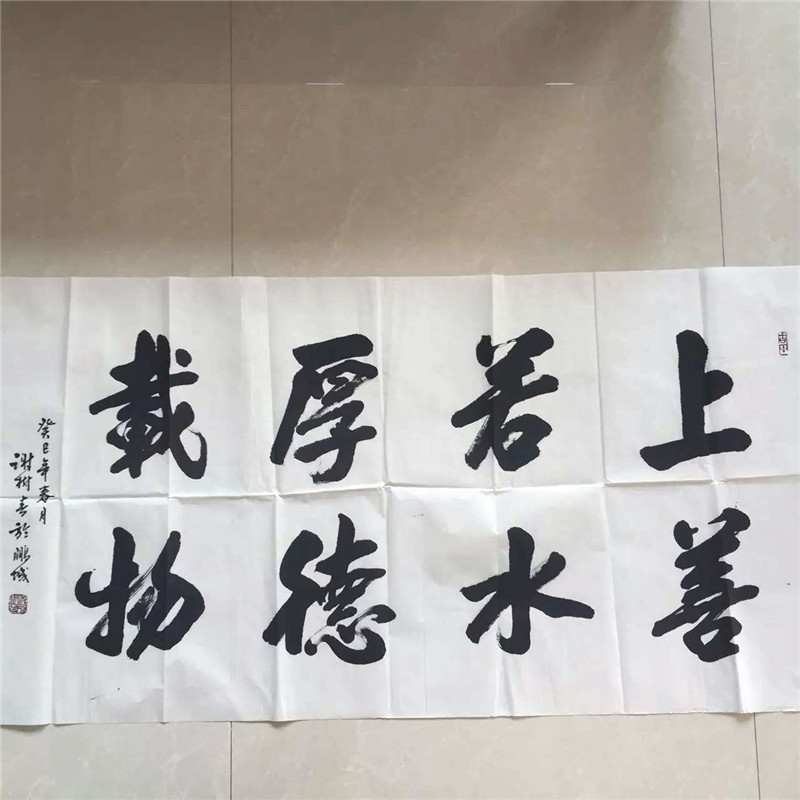 上善
若水
厚德
載物
癸巳年春月
谢树春於鹏城